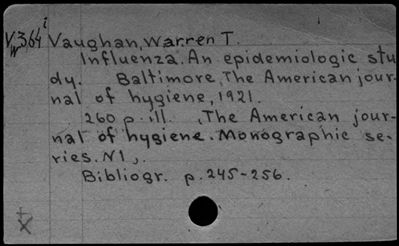 Vw364i Vaughan, Warren T.
Influenza. An epidemiologic stu
dy. Baltimore, The American jour-
nal of hygiene, 1921.
260 p. ill. , The American jour-
nal of hygiene. Monographic se-
ries. N1,.
Bibliogr. p. 245-256.